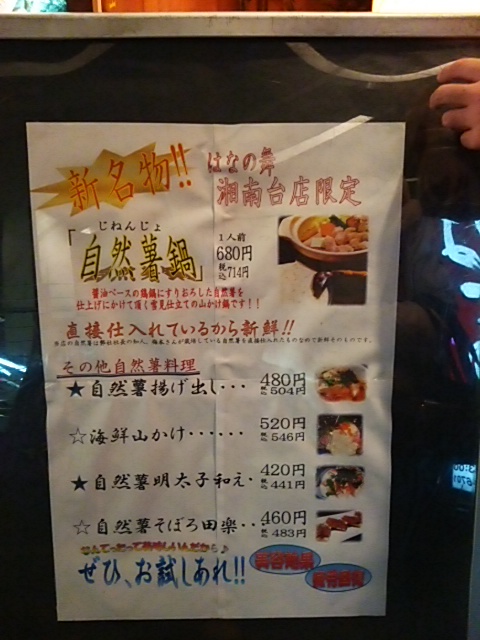 新名物!!
はなの舞
湘南台店限定
じねんじょ
「自然薯鍋」
1人前
680円
税込714円
醤油ベースの鶏鍋にすりおろした自然薯を
仕上げにかけて頂く雪見仕立ての山かけ鍋です!!
直接仕入れているから新鮮!!
その他自然薯料理
★自然薯揚げ出し・・・ 480円
税込504円
☆海鮮山かけ・・・・・・ 520円
税込546円
★自然薯明太子和え・ 420円
税込441円
☆自然薯そぼろ田楽・・ 460円
税込483円
なんてったって美味しいんだから♪
ぜひ、お試しあれ!!